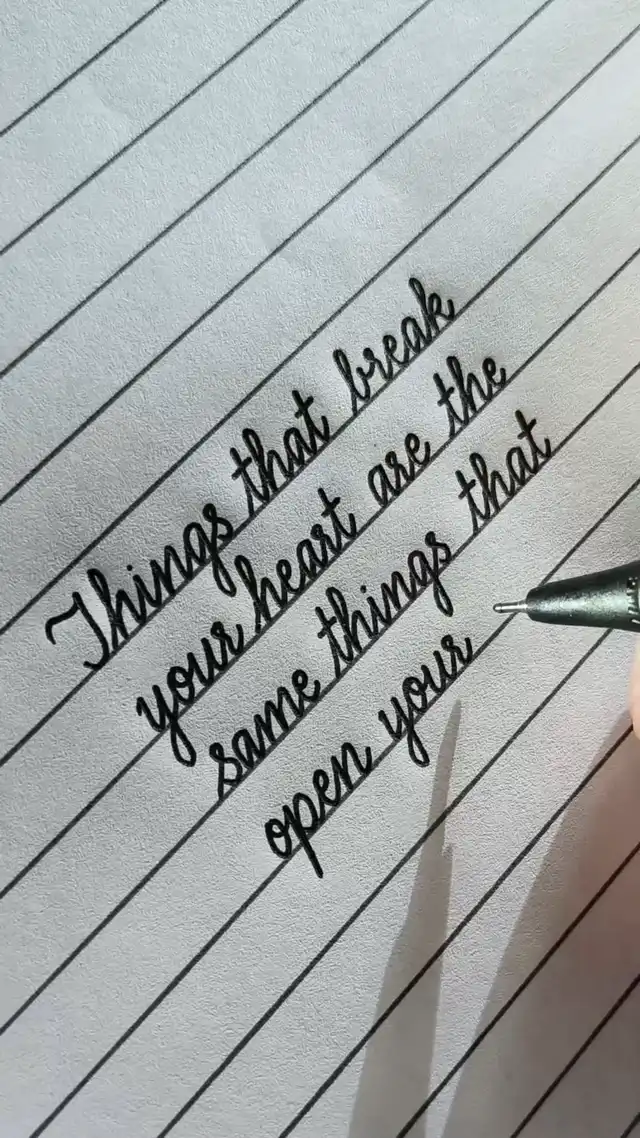 Things that break
your heart are the
same things that
open your